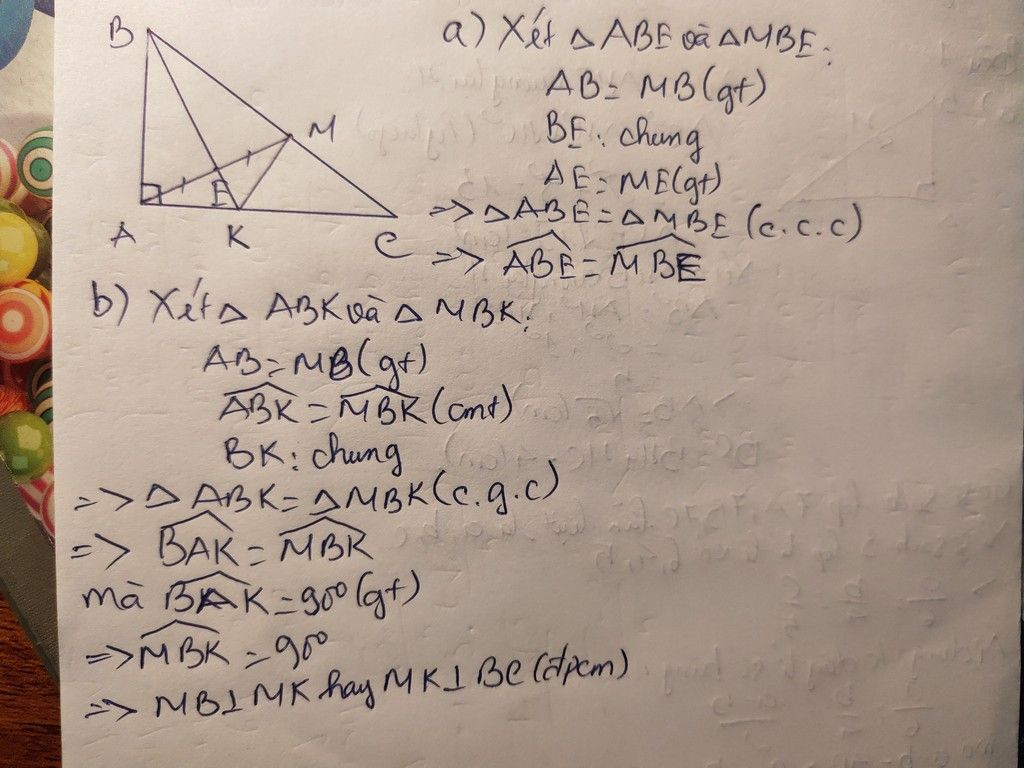 B
M
E
A
K
C
a) Xét △ ABE và △MBE:
AB = MB (gt)
BE: chung
AE = ME (gt)
=> △ABE = △MBE (c.c.c)
=> \widehat{ABE} = \widehat{MBE}
b) Xét △ ABK và △ MBK:
AB = MB (gt)
\widehat{ABK} = \widehat{MBK} (cmt)
BK: chung
=> △ ABK = △MBK (c.g.c)
=> \widehat{BAK} = \widehat{MBK}
mà \widehat{BAK} = 90° (gt)
=> \widehat{MBK} = 90°
=> MB⊥MK hay MK⊥BC (đpcm)